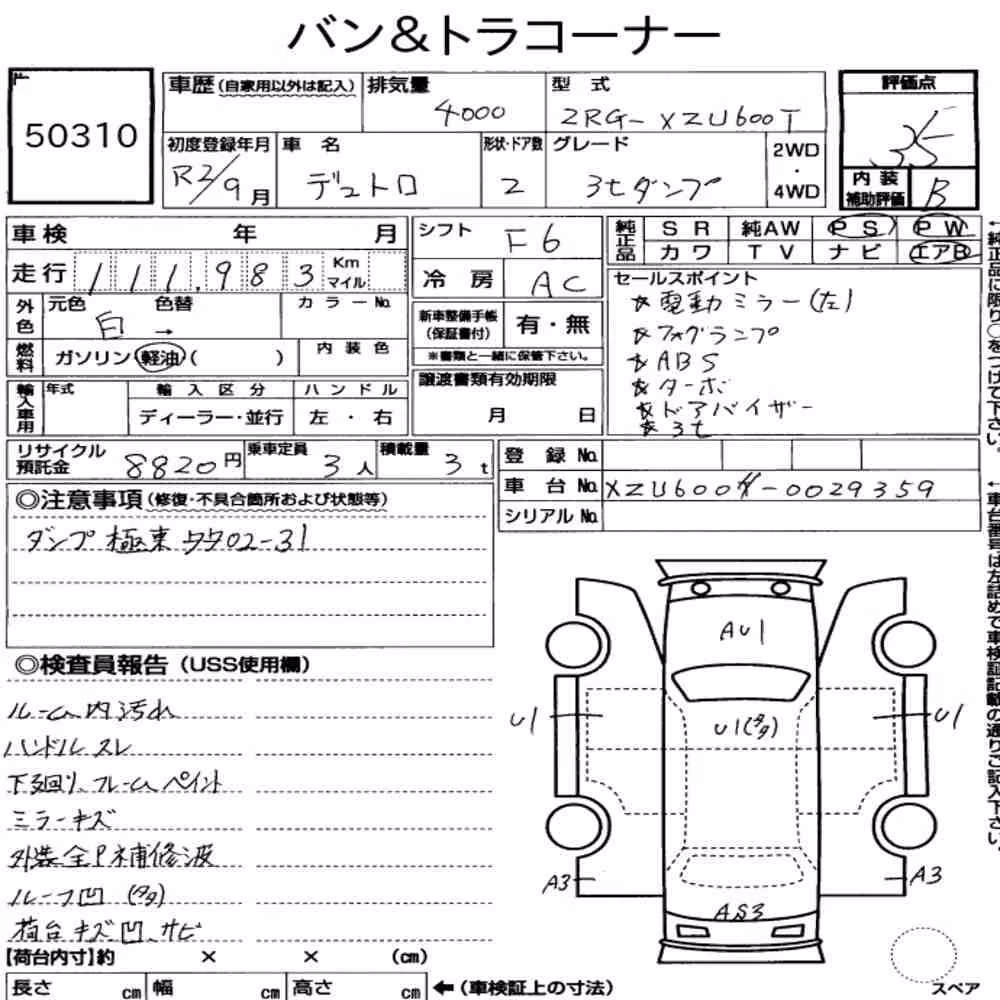 バン&トラコーナー
50310
車歴 (自家用以外は記入)
排気量
4000
型 式
2RG-XZU600T
評価点
3.5
初度登録年月
R2/9月
車 名
デュトロ
形状・ドア数
2
グレード
3tダンプ
2WD
・
4WD
内装
補助評価
B
車検 年 月
走行 111,983 Km マイル
シフト
F6
冷房
AC
純正品
SR 純AW PS PW
カワ TV ナビ エアB
外色
元色 色替 カラーNo.
白 →
燃料
ガソリン・軽油・( )
内装色
新車整備手帳
(保証書付)
有・無
※書類と一緒に保管下さい。
輸入車用
年式
輸入区分
ディーラー・並行
ハンドル
左・右
譲渡書類有効期限
月 日
セールスポイント
☆電動ミラー(左)
☆フォグランプ
☆ABS
☆ターボ
☆ドアバイザー
☆3t
←純正品に限り○をつけて下さい。
リサイクル
預託金
8820円
乗車定員
3人
積載量
3t
登録No.
車台No. XZU600-0029359
シリアルNo.
←車台番号は左詰めで車検証記載の通りご記入下さい。
◎注意事項(修復・不具合箇所および状態等)
ダンプ 極東 02-31
◎検査員報告(USS使用欄)
ルーム内汚れ
ハンドルスレ
下廻り、フレームペイント
ミラーキズ
外装全P補修波
ルーフ凹(タタ)
荷台キズ、凹、サビ
AU1
U1
U1(タタ)
U1
A3
A3
AS3
スペア
【荷台内寸】約 × × (cm)
長さ cm 幅 cm 高さ cm ←(車検証上の寸法)